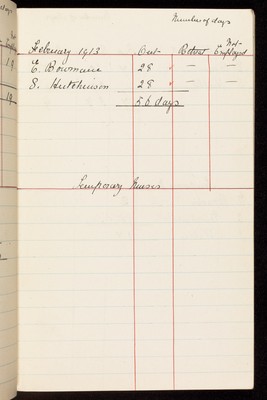 Number of days
February 1913 Out Retreat Not Employed
E. Bowmane 28 — —
S. Hutchinson 28 — —
56 days
Temporary Nurses
19
19